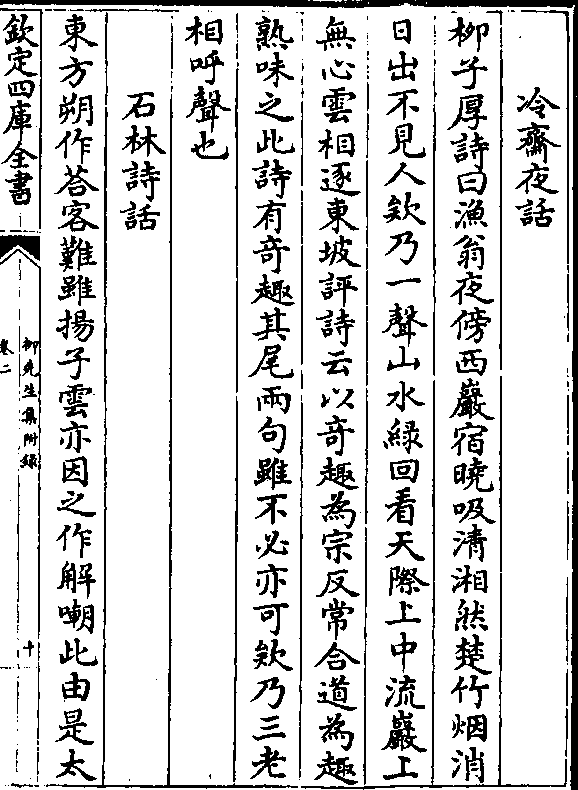 冷齋夜話
柳子厚詩曰漁翁夜傍西巖宿曉吸清湘然楚竹烟消
日出不見人欸乃一聲山水緑回看天際上中流巖上
無心雲相逐東坡評詩云以竒趣為宗反常合道為趣
熟味之此詩有竒趣其尾兩句雖不必亦可欸乃三老
相呼聲也
石林詩話
東方朔作荅客難雖揚子雲亦因之作解嘲此由是太
欽定四庫全書
柳先生集附録
卷二
十